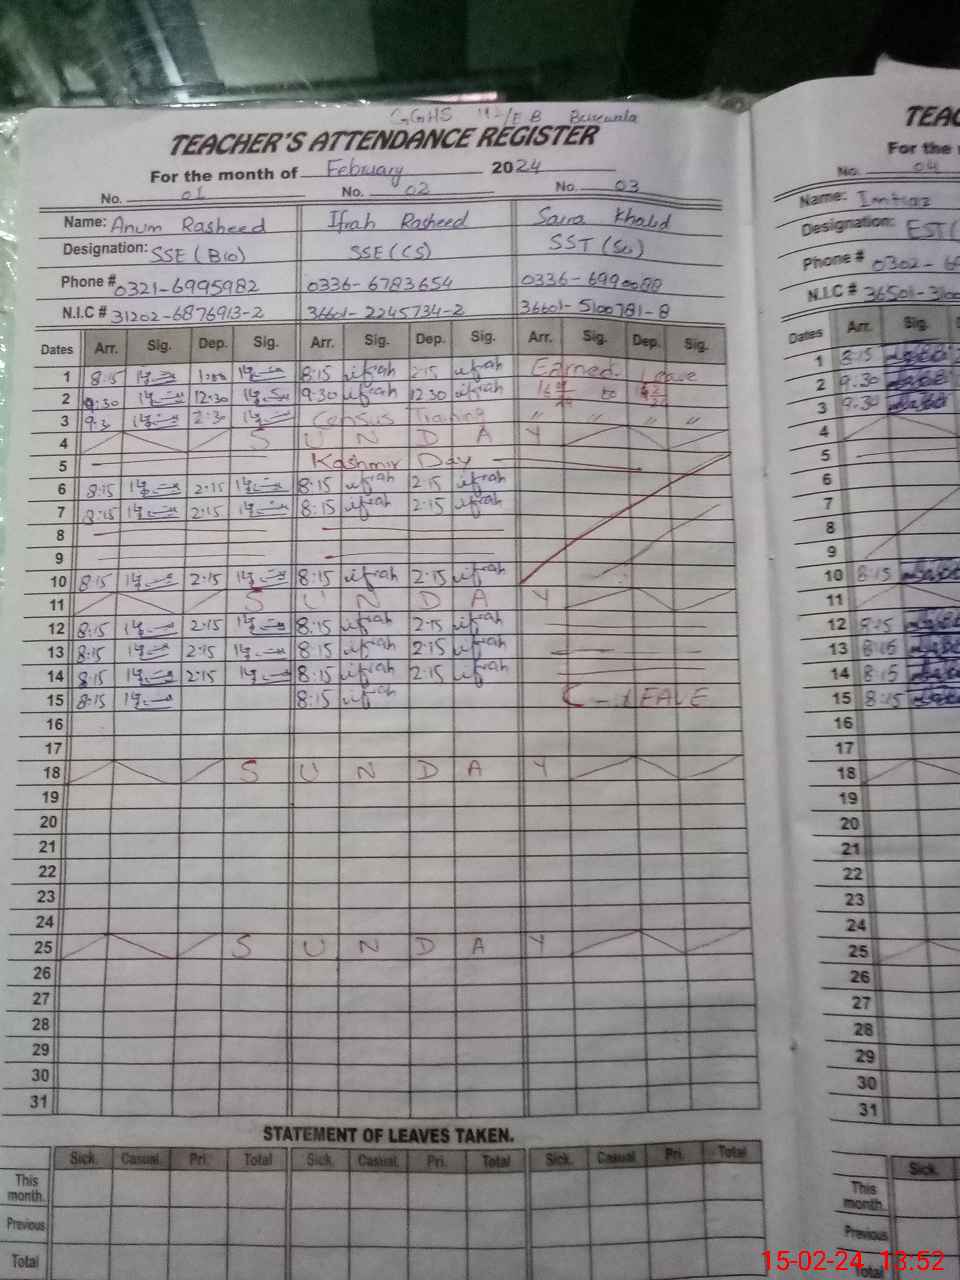 GGHS EB Burewala
TEACHER'S ATTENDANCE REGISTER
For the month of February 2024
No. 01 No. 02 No. 03
Name: Anum Rasheed Ifrah Rasheed Saira Khalid
Designation: SSE (Bio) SSE (CS) SST (Sci)
Phone # 0321-6995982 0336-6783654 0336-6990088
N.I.C # 31202-6876913-2 36601-2245734-2 36601-5100781-8
Dates Arr. Sig. Dep. Sig. Arr. Sig. Dep. Sig. Arr. Sig. Dep. Sig.
1 8:15 1:00 8:15 ifrah 2:15 ifrah Earned Leave
2 9:30 12:30 9:30 ifrah 12:30 ifrah to
3 9:3 2:30 Census Training " " " "
4 S U N D A Y
5 Kashmir Day
6 8:15 2:15 8:15 ifrah 2:15 ifrah
7 8:15 2:15 8:15 ifrah 2:15 ifrah
8
9
10 8:15 2:15 8:15 ifrah 2:15 ifrah
11 S U N D A Y
12 8:15 2:15 8:15 ifrah 2:15 ifrah
13 8:15 2:15 8:15 ifrah 2:15 ifrah
14 8:15 2:15 8:15 ifrah 2:15 ifrah
15 8:15 8:15 ifrah C - LEAVE
16
17
18 S U N D A Y
19
20
21
22
23
24
25 S U N D A Y
26
27
28
29
30
31
STATEMENT OF LEAVES TAKEN.
Sick. Casual. Pri. Total Sick. Casual. Pri. Total Sick. Casual. Pri. Total
This month.
Previous
Total
TEAC
For the
No. 04
Name: Imtiaz
Designation: EST (
Phone # 0302-6
N.I.C # 36501-3100
Dates Arr. Sig.
1 8:15
2 9:30
3 9:30
4
5
6
7
8
9
10 8:15
11
12 8:15
13 8:15
14 8:15
15 8:15
16
17
18
19
20
21
22
23
24
25
26
27
28
29
30
31
Sick.
This month.
Previous
Total
15-02-24 13:52